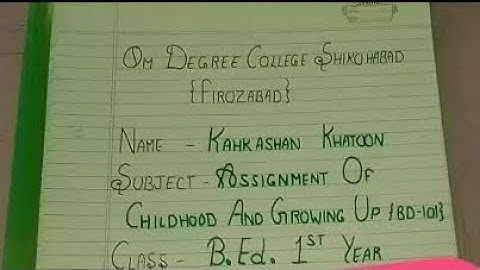 OM DEGREE COLLEGE SHIKOHABAD
{FIROZABAD}
NAME - KAHKASHAN KHATOON
SUBJECT - ASSIGNMENT OF
CHILDHOOD AND GROWING UP {BD-101}
CLASS - B.Ed. 1ST YEAR